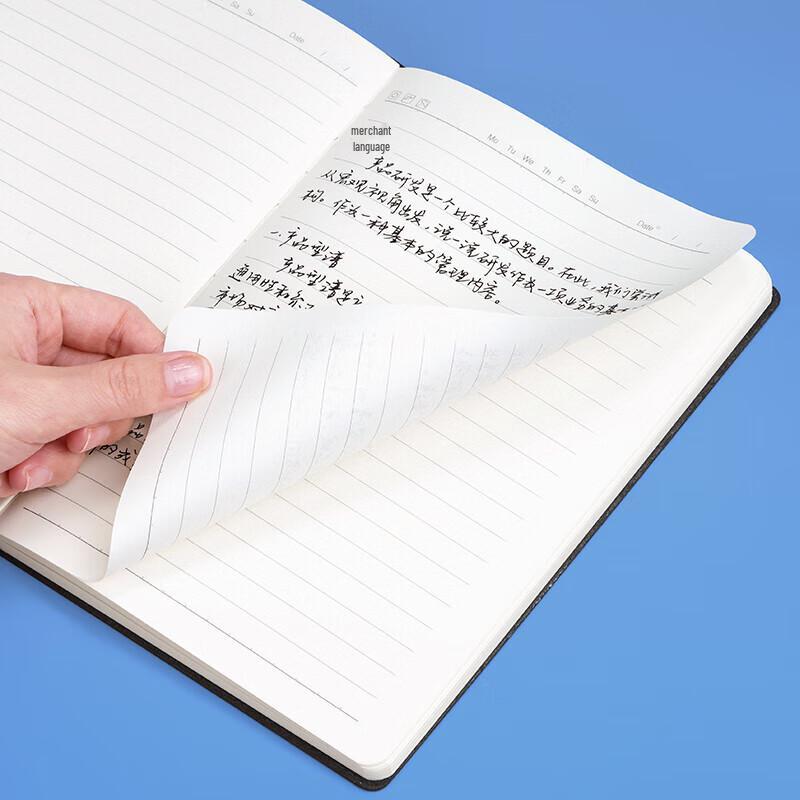 Sa Su
Date / /
Mo Tu We Th Fr Sa Su
Date / /
merchant
language
产品研发是一个比较大的题目。在此,我们尝试
从宏观视角出发,说一说研发作为一项业务的基本
构。作为一种基本的管理内容。
一、产品型谱
产品型谱是
通用性和
市场对
品
的或